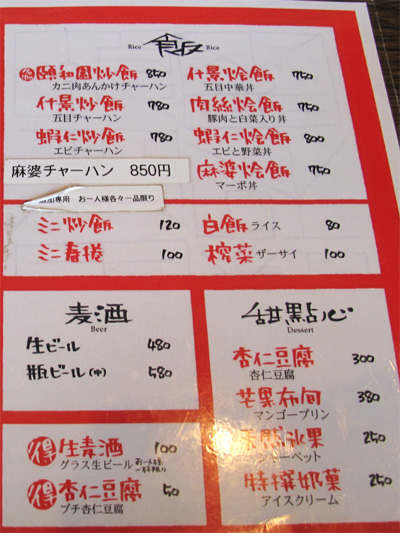 Rice 飯 Rice
頤和園炒飯 850
カニ肉あんかけチャーハン
什景炒飯 780
五目チャーハン
蝦仁炒飯 780
エビチャーハン
麻婆チャーハン 850円
専用 お一人様各々一品限り
什景烩飯 750
五目中華丼
肉絲烩飯 750
豚肉と白菜入り丼
蝦仁烩飯 750
エビと野菜丼
麻婆烩飯 750
マーボ丼
ミニ炒飯 120
ミニ春捲 100
白飯 ライス 80
榨菜 ザーサイ 100
麦酒
Beer
生ビール 480
瓶ビール(中) 580
得 生麦酒 100
グラス生ビール お一人様一杯限り
得 杏仁豆腐 50
プチ杏仁豆腐
甜點心
Dessert
杏仁豆腐 300
杏仁豆腐
芒果布旬 380
マンゴープリン
氷果 250
ーベット
特撰奶菓 250
アイスクリーム